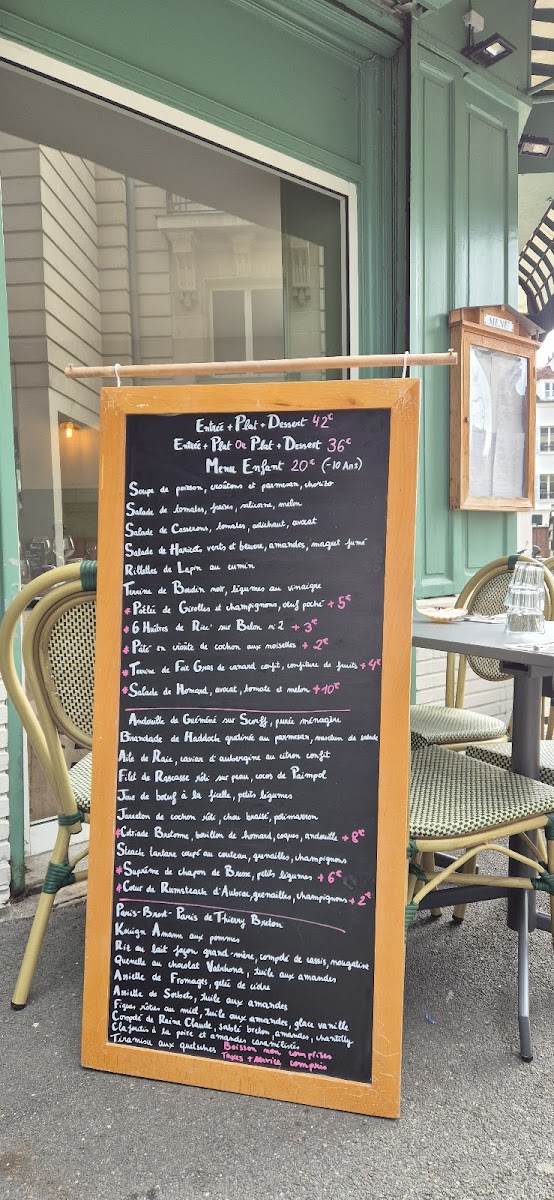 MENU
Entrée + Plat + Dessert 42€
Entrée + Plat Ou Plat + Dessert 36€
Menu Enfant 20€ (-10 Ans)
Soupe de poisson, croûtons et parmesan, chorizo
Salade de tomates, fraises, melon
Salade de Casserons, tomates, artichaut, avocat
Salade de Haricots verts et beurre, amandes, magret fumé
Rillettes de Lapin au cumin
Terrine de Boudin noir, légumes au vinaigre
* Poêlée de Girolles et champignons, œuf poché + 5€
* 6 Huîtres de Riec sur Belon n°2 + 3€
* Pâté en croûte de cochon aux noisettes + 2€
* Terrine de Foie Gras de canard confit, confiture de fruits + 4€
* Salade de Homard, avocat, tomate et melon + 10€
Andouille de Guéméné sur Scorff, purée ménagère
Brandade de Haddock gratinée au parmesan, mesclun de salade
Aile de Raie, caviar d'aubergine au citron confit
Filet de Rascasse rôti sur peau, cocos de Paimpol
Joue de bœuf à la ficelle, petits légumes
Jambon de cochon rôti, chou braisé, potimarron
* Cotriade Bretonne, bouillon de homard, coques, andouille + 8€
Steack tartare coupé au couteau, grenailles, champignons
* Suprême de chapon de Bresse, petits légumes + 6€
* Cœur de Rumsteack d'Aubrac, grenailles, champignons + 2€
Paris-Brest-Paris de Thierry Breton
Kouign Amann aux pommes
Riz au lait façon grand-mère, compotée de cassis, nougatine
Quenelle au chocolat Valrhona, tuile aux amandes
Assiette de Fromages, gelée de cidre
Assiette de Sorbets, tuile aux amandes
Figues rôties au miel, tuile aux amandes, glace vanille
Compoté de Reine Claude, sablé breton, amandes, chantilly
Clafoutis à la poire et amandes caramélisées
Tiramisu aux quetsches
Boisson non comprises
Taxes + service compris